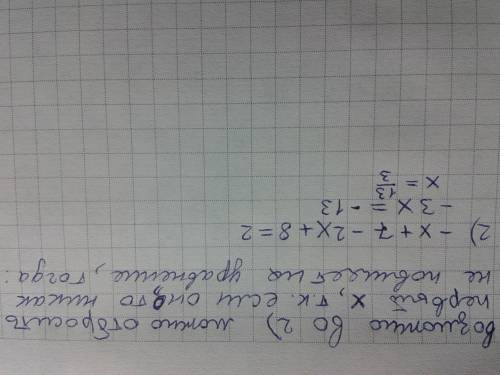 возможно во 2) можно отбросить
первый х, т.к. если он 0, то никак
не повлияет на уравнение, тогда:
2) - х + 7 - 2х + 8 = 2
- 3х = - 13
х = 13/3